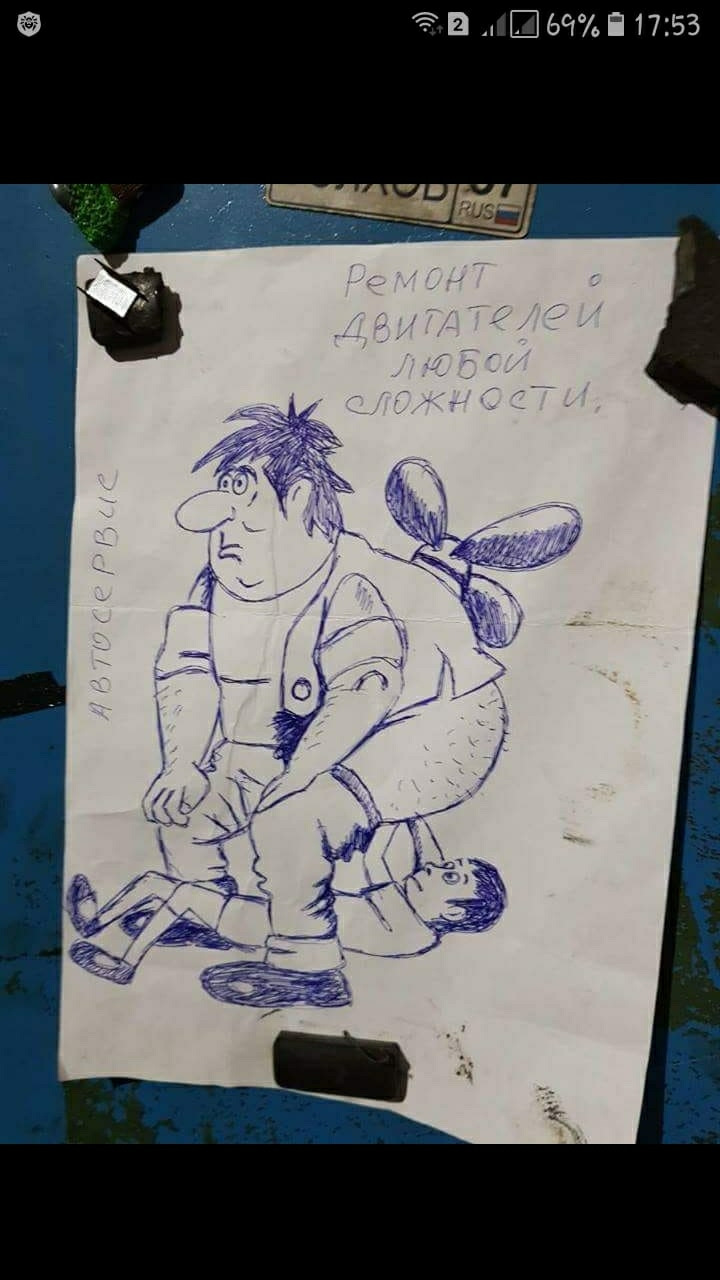 2 69% 17:53
RUS
Ремонт
двигателей
любой
сложности.
АВТОСЕРВИС